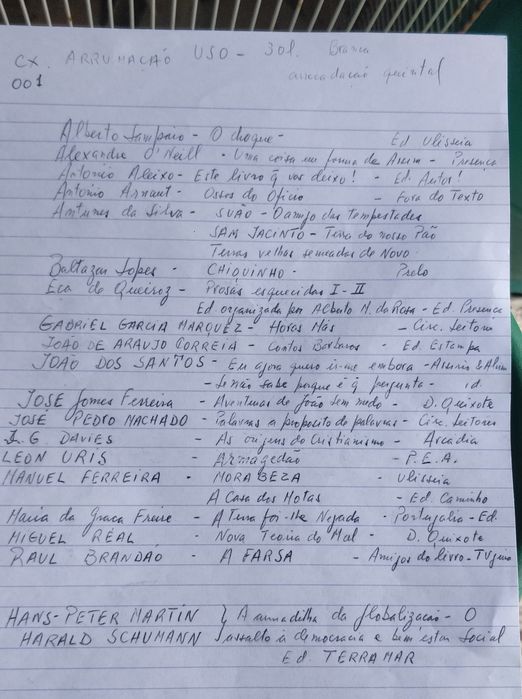 CX. ARRUMAÇÃO USO - 301. Branca
001 arrecadação quintal
Alberto Sampaio - O choque - Ed Ulisseia
Alexandre O'Neill - Uma coisa em forma de Assim - Presença
Antonio Aleixo - Este livro q vos deixo! - Ed. Autor!
Antonio Arnaut - Ossos do Oficio - Fora do Texto
Antunes da Silva - SUÃO - O amigo das tempestades
SAM JACINTO - Terra do nosso Pão
Terras velhas semeadas de Novo
Baltazar Lopes - CHIQUINHO - Prelo
Eca de Queiroz - Prosas esquecidas I - II
Ed organizada por Alberto M. da Rosa - Ed. Presença
GABRIEL GARCIA MARQUEZ - Horas Más - Circ. Leitores
JOÃO DE ARAUJO CORREIA - Contos Barbaros - Ed. Estampa
JOÃO DOS SANTOS - Eu agora quero ir-me embora - Assirio & Alvim
- Se não sabe porque é q pergunta - id.
JOSÉ Gomes Ferreira - Aventuras de João Sem medo - D. Quixote
JOSÉ PEDRO MACHADO - Palavras a proposito de palavras - Circ. Leitores
G. DAVIES - As origens do Cristianismo - Arcadia
LEON URIS - Armagedão - P.E.A.
MANUEL FERREIRA - MORABEZA - Ulisseia
A Casa dos Motas - Ed. Caminho
Maria da Graca Freire - A Terra foi-lhe Negada - Portugalia - Ed.
MIGUEL REAL - Nova Teoria do Mal - D. Quixote
RAUL BRANDAO - A FARSA - Amigos do livro -
HANS-PETER MARTIN } A armadilha da globalizacao - O
HARALD SCHUMANN } assalto à democracia e bem estar social
Ed. TERRAMAR